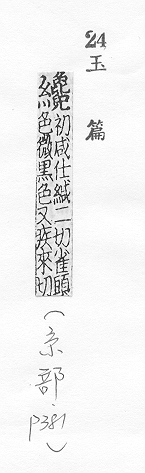 24 玉篇
纔初咸仕緘二切雀頭色微黑色又疾來切
(糸部. P381)